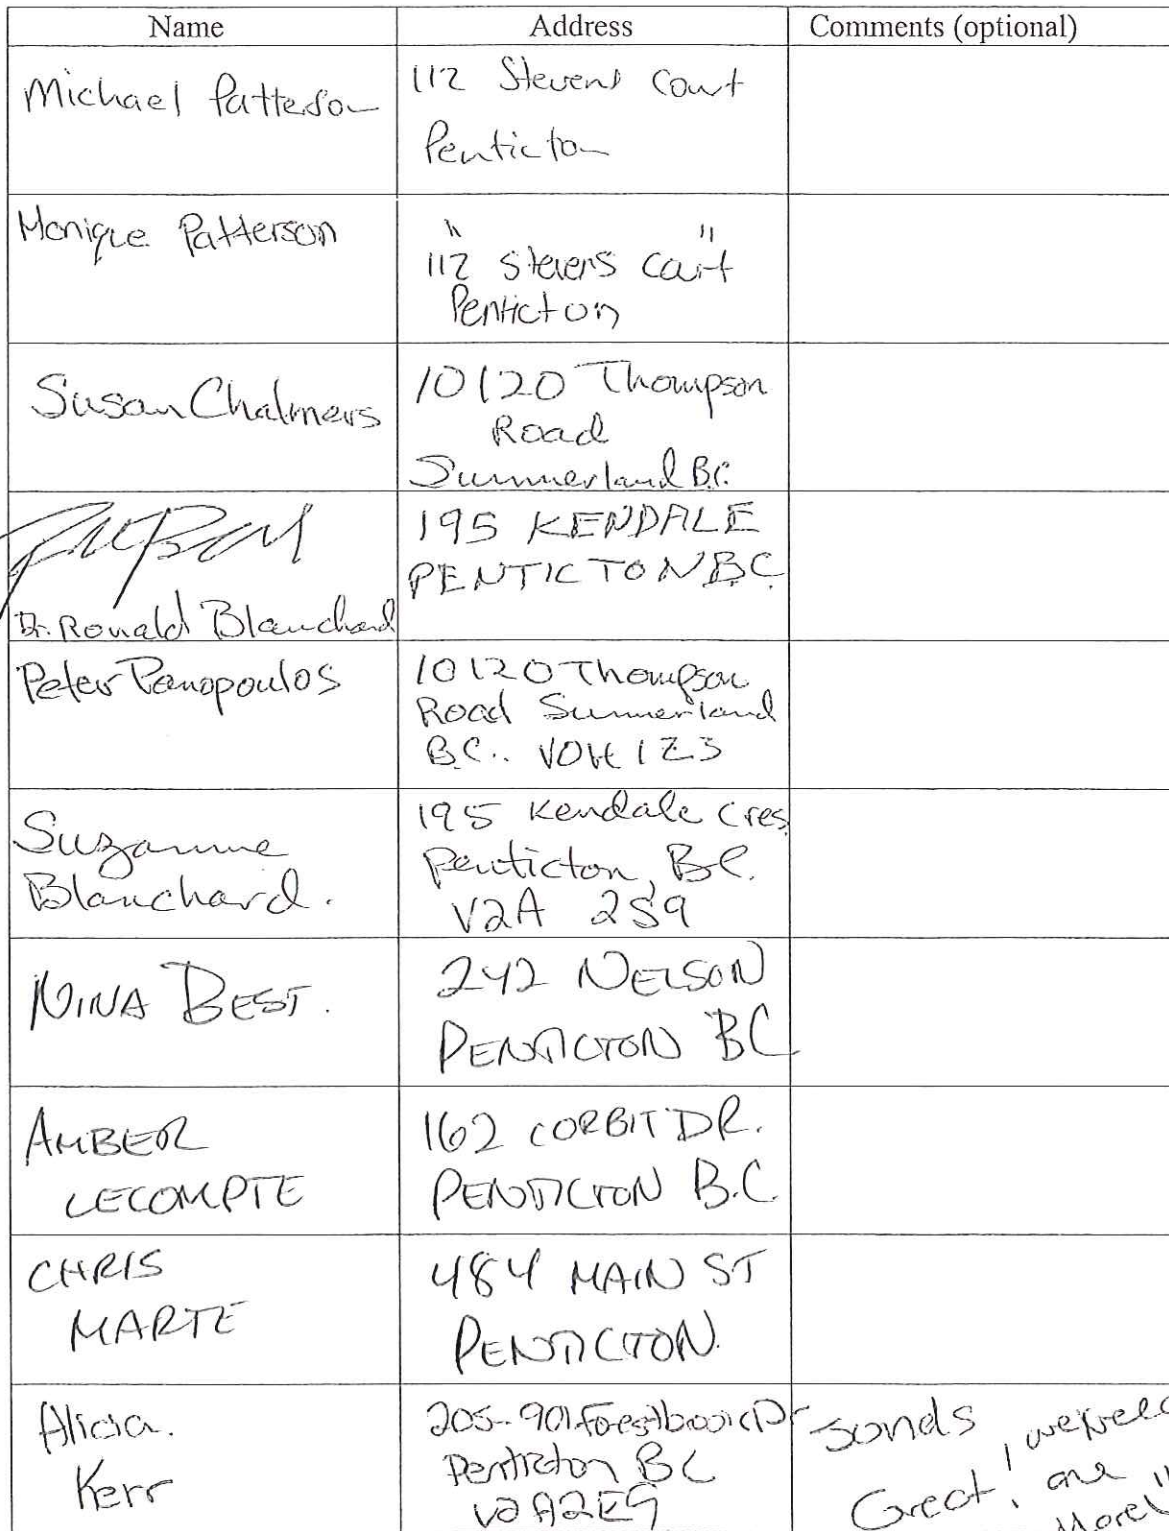 Name Address Comments (optional)
Michael Patterson
112 Stevens Court
Penticton
Monique Patterson
" "
112 Stevens Court
Penticton
Susan Chalmers
10120 Thompson
Road
Summerland B.C.
Dr. Ronald Blanchard
195 KENDALE
PENTICTON BC
Peter Panopoulos
10120 Thompson
Road Summerland
B.C.. V0H 1Z3
Suzanne
Blanchard.
195 Kendale Cres
Penticton, BC.
V2A 2S9
NINA BEST.
242 NELSON
PENTICTON BC
AMBER
LECOMPTE
162 CORBIT DR.
PENTICTON B.C.
CHRIS
MARTE
484 MAIN ST
PENTICTON.
Alicia.
Kerr
205-901 Forestbrook Dr
Penticton BC
V2A2E9
Sonds
Great, one
More!!